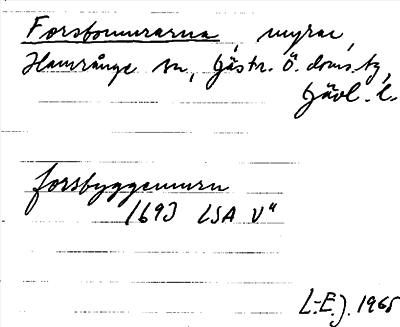 Forsbomurarna, myrar,
Hamrånge sn, Gästr. Ö. doms.tg,
Gävl. l.
forsbyggemurn
1693 LSA V"
L-E.J. 1965